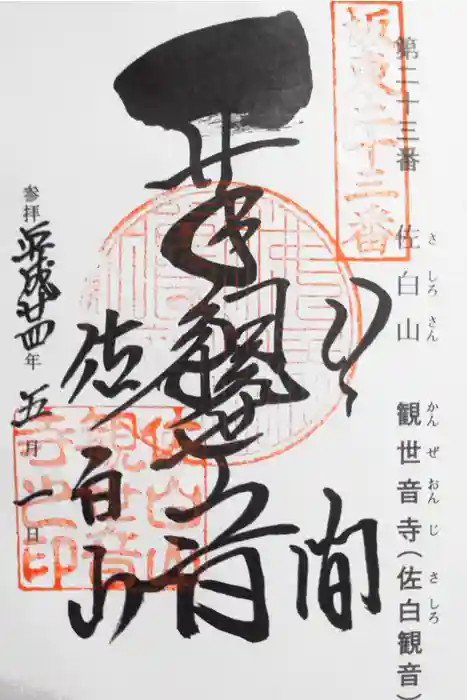 第二十三番 佐白山 観世音寺(佐白観音)
さしろさん かんぜおんじ さしろ
坂東二十三番
千手観世音
佐白山
佐白山観世音寺之印
参拝 平成廿四年 五月一日